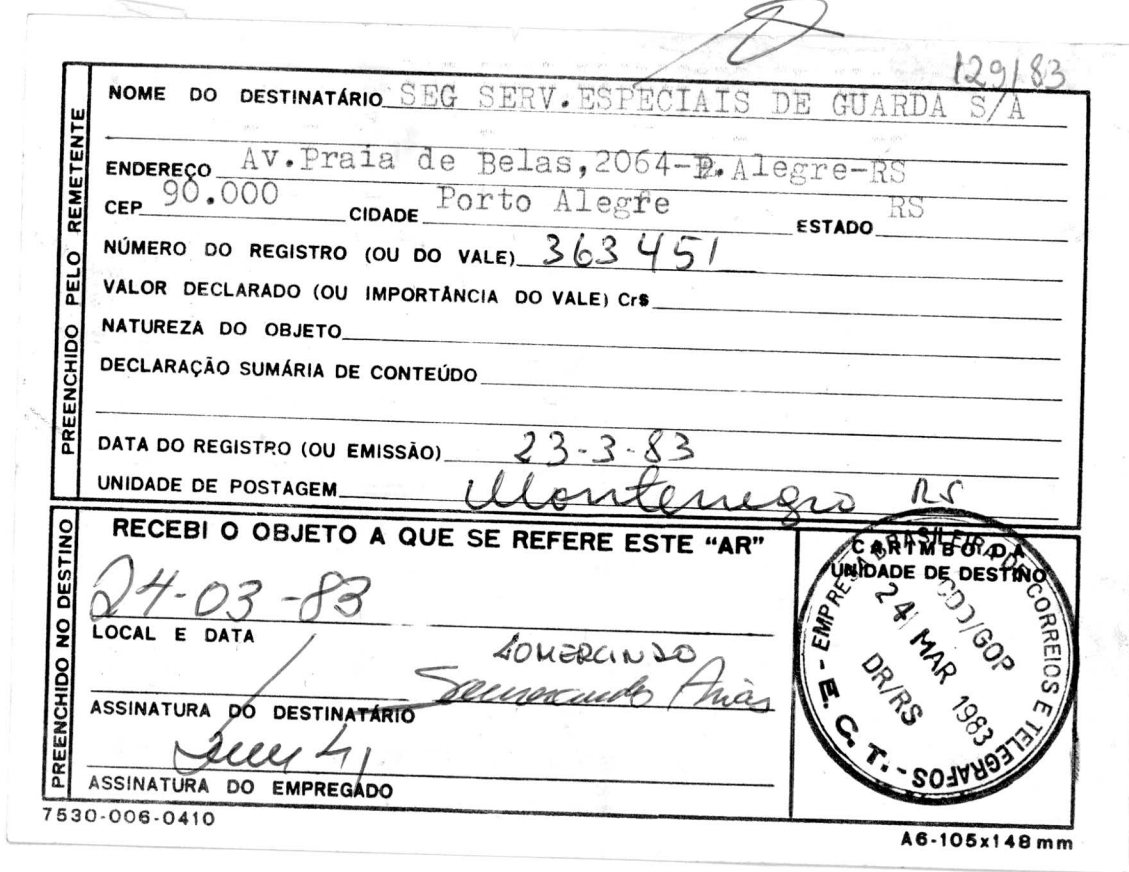 129/83
PREENCHIDO PELO REMETENTE
NOME DO DESTINATÁRIO SEG SERV.ESPECIAIS DE GUARDA S/A
ENDEREÇO Av.Praia de Belas,2064-P.Alegre-RS
CEP 90.000 CIDADE Porto Alegre ESTADO RS
NÚMERO DO REGISTRO (OU DO VALE) 363451
VALOR DECLARADO (OU IMPORTÂNCIA DO VALE) Cr$
NATUREZA DO OBJETO
DECLARAÇÃO SUMÁRIA DE CONTEÚDO
DATA DO REGISTRO (OU EMISSÃO) 23-3-83
UNIDADE DE POSTAGEM Montenegro RS
PREENCHIDO NO DESTINO
RECEBI O OBJETO A QUE SE REFERE ESTE "AR"
24-03-83
LOCAL E DATA
Arias
ASSINATURA DO DESTINATÁRIO
ASSINATURA DO EMPREGADO
CARIMBO DA
UNIDADE DE DESTINO
EMPRESA BRASILEIRA DE CORREIOS E TELEGRAFOS - E.C.T. -
CDD/GOP
24 MAR 1983
DR/RS
7530-006-0410
A6-105x148mm